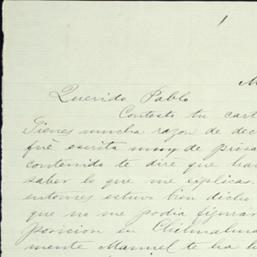 1
M
Querido Pablo
Contesto tu cart
Tienes mucha razon de dec
fué escrita muy de prisa
contenido te diré que ha
saber lo que me esplicas.
entonces estuvo bien dicho
que no me podia figurar
posicion en
mente Manuel te ha